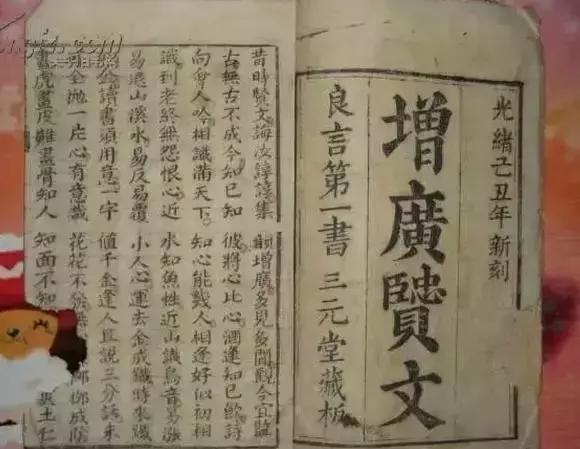 光緒己丑年新刻
增廣贒文
良言第一書 三元堂藏板
昔時賢文誨汝諄諄集 韻增廣多見多聞觀今宜鑒
古無古不成今知己知 彼將心比心酒逢知己飲詩
向會人吟相識滿天下 知心能幾人相逢好似初相
識到老終無怨恨心近 水知魚性近山識鳥音易漲
易退山溪水易反易覆 小人心運去金成鐵時來鐵
似金讀書須用意一字 值千金逢人且說三分話未
可全拋一片心有意栽 花花不發無 柳成陰
畫虎畫皮難畫骨知人 知面不知 土仁